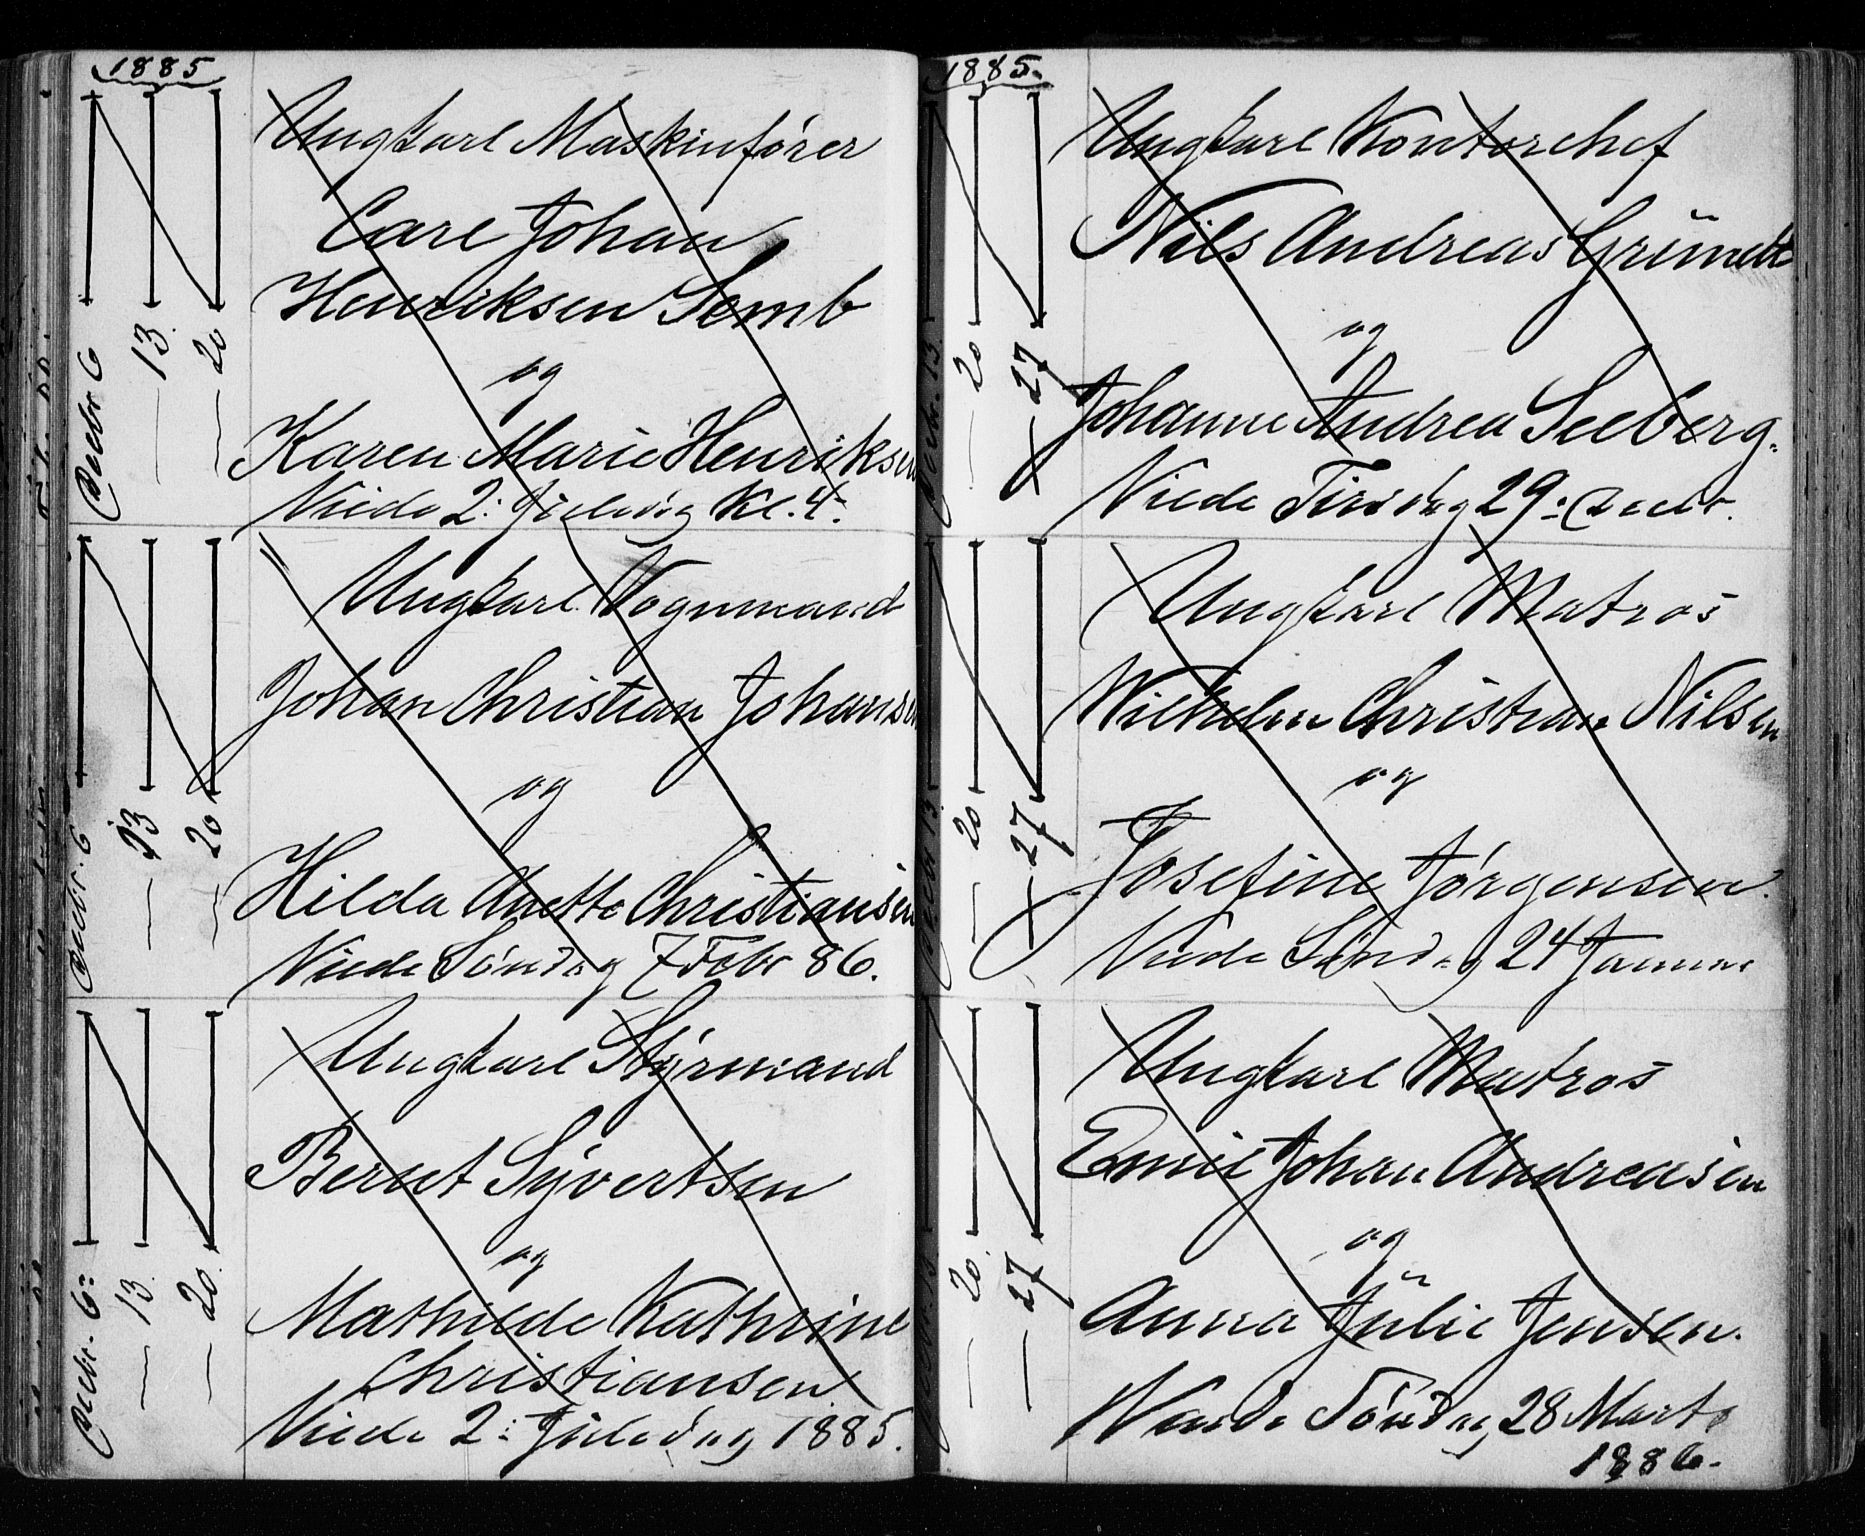 1885
Ungkarl Maskinfører
Carl Johan
Henriksen Semb
og
Karen Marie Henriksen
Viede 2: Juledag Kl. 4.
Decbr 6
— 13.
— 20
Ungkarl Vognmand
Johan Christian Johansen
og
Hilda Anette Christiansen
Viede Søndag 7 Febr 86.
Decbr. 6
— 13
— 20
Ungkarl Styrmand
Bernt Syvertsen
og
Mathilde Kathrine
Christiansen
Viede 2: Juledag 1885.
Decbr. 6:
— 13.
— 20.
1885.
Ungkarl Kontorchef
Nils Andreas Gründt
og
Johanne Andrea Seeberg.
Viede Tirsdag 29: Decbr.
Decbr. 13.
— 20
— 27
Ungkarl Matros
Wilhelm Christian Nilsen
og
Josefine Jørgensen.
Viede Søndag 24 Januar
Decbr 13.
— 20
— 27
Ungkarl Matros
Emil Johan Andreasen
og
Anna Julie Jensen.
Viede Søndag 28 Marts
1886.
Decbr. 13
— 20.
— 27